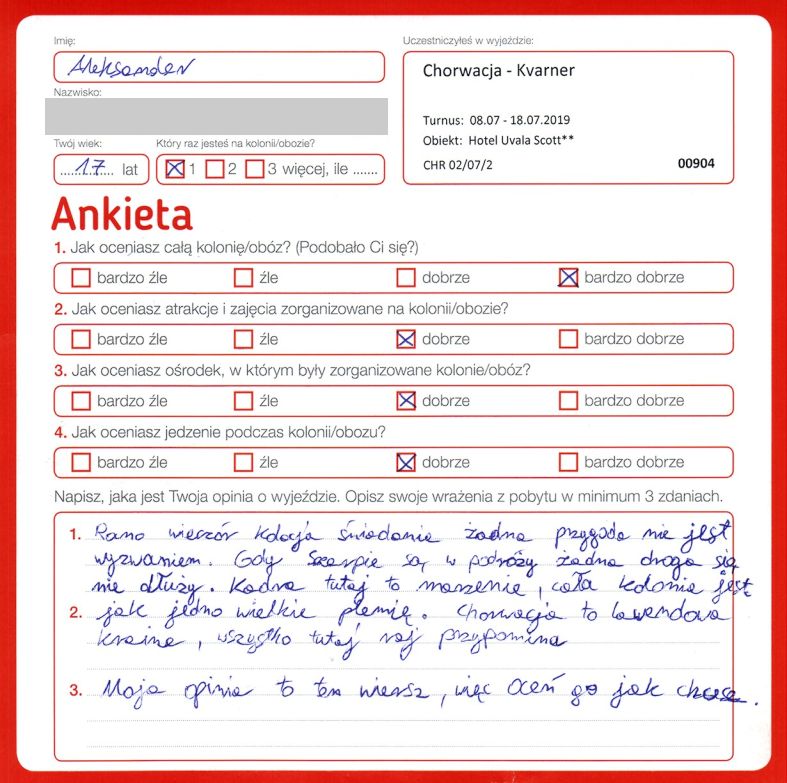 Imię:
Aleksander
Nazwisko:
Twój wiek:
17 lat
Który raz jesteś na kolonii/obozie?
1 2 3 więcej, ile .......
Uczestniczyłeś w wyjeździe:
Chorwacja - Kvarner
Turnus: 08.07 - 18.07.2019
Obiekt: Hotel Uvala Scott**
CHR 02/07/2 00904
Ankieta
1. Jak oceniasz całą kolonię/obóz? (Podobało Ci się?)
bardzo źle źle dobrze bardzo dobrze
2. Jak oceniasz atrakcje i zajęcia zorganizowane na kolonii/obozie?
bardzo źle źle dobrze bardzo dobrze
3. Jak oceniasz ośrodek, w którym były zorganizowane kolonie/obóz?
bardzo źle źle dobrze bardzo dobrze
4. Jak oceniasz jedzenie podczas kolonii/obozu?
bardzo źle źle dobrze bardzo dobrze
Napisz, jaka jest Twoja opinia o wyjeździe. Opisz swoje wrażenia z pobytu w minimum 3 zdaniach.
1. Rano wieczór kolacja śniadanie żadna przygoda nie jest
wyzwaniem. Gdy Szarpie są w podróży żadna droga się
nie dłuży. Kadra tutaj to marzenie, cała kolonia jest
2. jak jedno wielkie plemię. Chorwacja to lawendowa
kraina, wszystko tutaj raj przypomina
3. Moja opinia to ten wiersz, więc oceń go jak chcesz.